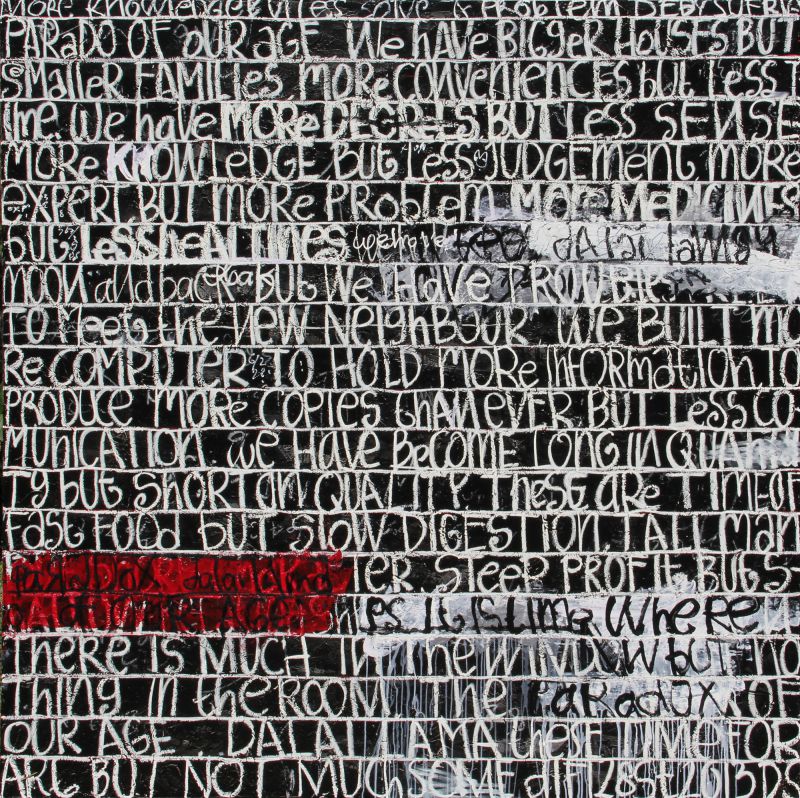 PARADO OF OUR AGE We HAVE BIGGER HOUSES BUT
SMAlleR FAMILIES MORe CONVENIENCES but Less T
ime. We have MORe DEGREES BUT Less SENSE
MORe KNOWLeDGE BUT Less JUDGEMENT MORe
eXPERT BUT MORe PROBLeM MORe MeDICINES
but LeSS HEALTINES dalai lama
MOON and back BUT We HAVE TROUBLE
TO MeeT the NEW NeighBOUR We BUILT MO
Re COMPUTER TO HOLD MORe INFORMATION TO
PRODUCE MORe COPIES thAN EVER BUT Less CO
MUNICATION We HAVE BeCOME LONG IN QUANTI
Ty but SHORT ON QUALITY These aRe TIME OF
Fast FOOd BUT SLOW DIGESTION TALL MAN
TER STEEP PROFIT BUT S
IT IS time Where
THeRe IS MUCH IN The WINDOW but NO
THING IN the ROOM The PaRadOX OF
OUR AGE DALAI LAMA these TIME FOR
ART BUT NOT MUCH SOME